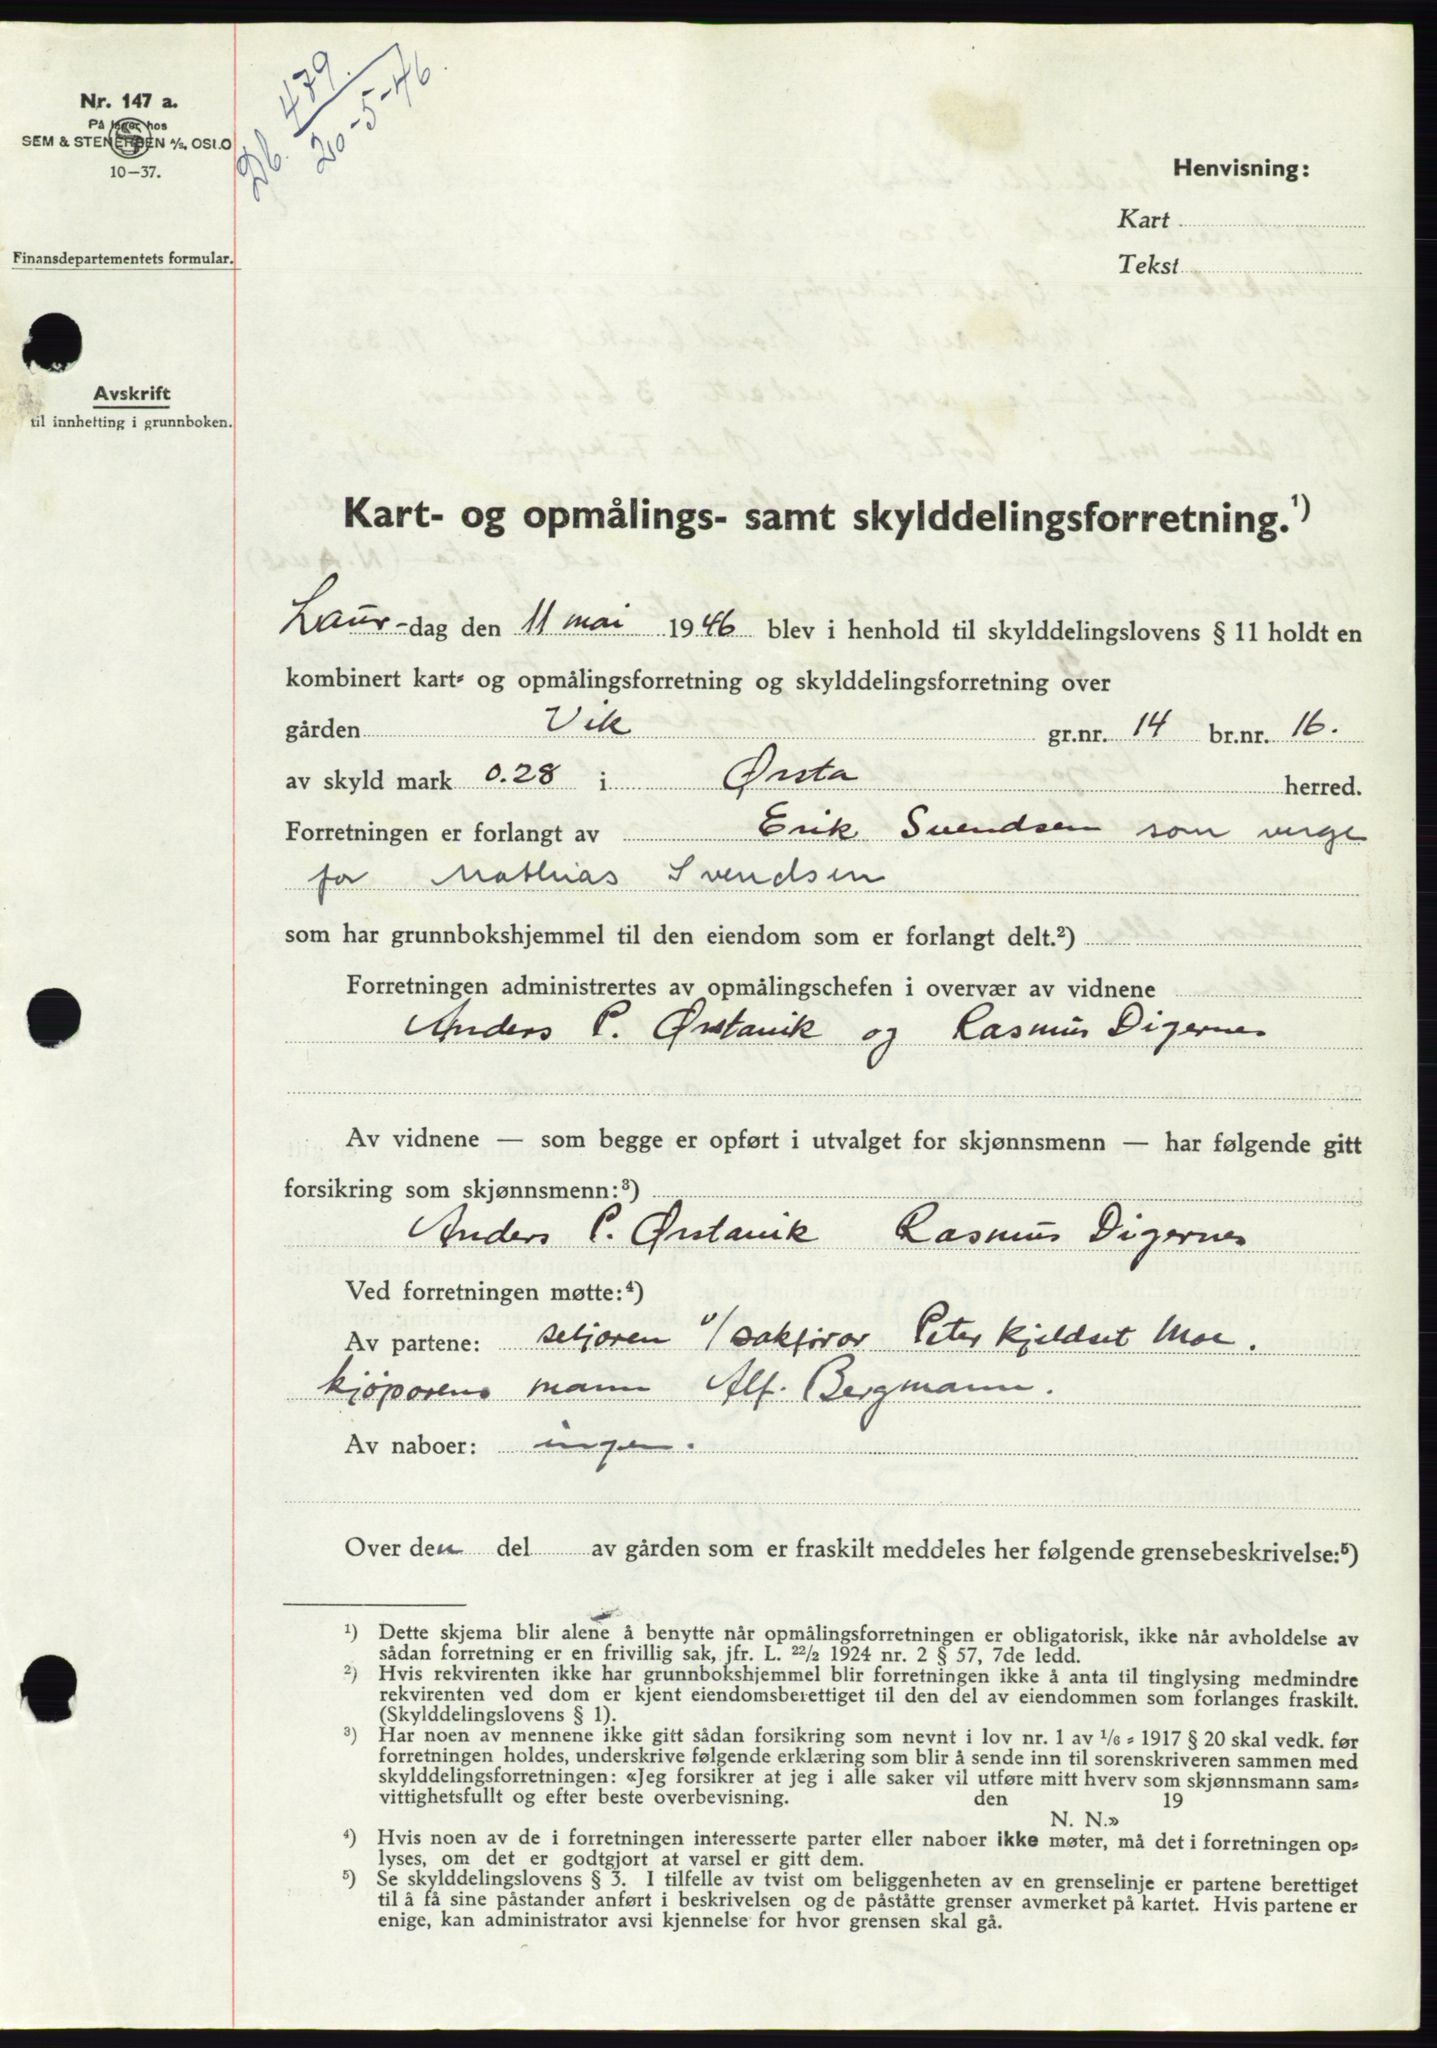 Nr. 147 a.
På lager hos
SEM & STENERSEN A/S, OSLO
10-37.
Finansdepartementets formular.
Avskrift
til innhetting i grunnboken.
Db. 479
20-5-46.
Henvisning:
Kart
Tekst
Kart- og opmålings- samt skylddelingsforretning.¹)
Laur-dag den 11 mai 1946 blev i henhold til skylddelingslovens § 11 holdt en
kombinert kart- og opmålingsforretning og skylddelingsforretning over
gården Vik gr.nr. 14 br.nr. 16.
av skyld mark 0.28 i Ørsta herred.
Forretningen er forlangt av Erik Svendsen som verge
for Mathias Svendsen
som har grunnbokshjemmel til den eiendom som er forlangt delt.²)
Forretningen administrertes av opmålingschefen i overvær av vidnene
Anders P. Ørstavik og Rasmus Digernes
Av vidnene — som begge er opført i utvalget for skjønnsmenn — har følgende gitt
forsikring som skjønnsmenn:³)
Anders P. Ørstavik Rasmus Digernes
Ved forretningen møtte:⁴)
Av partene: seljaren v/sakførar Peter Kjeldset Moe.
kjøparens mann Alf. Bergmann.
Av naboer: ingen.
Over den del av gården som er fraskilt meddeles her følgende grensebeskrivelse:⁵)
¹) Dette skjema blir alene å benytte når opmålingsforretningen er obligatorisk, ikke når avholdelse av
sådan forretning er en frivillig sak, jfr. L. 22/2 1924 nr. 2 § 57, 7de ledd.
²) Hvis rekvirenten ikke har grunnbokshjemmel blir forretningen ikke å anta til tinglysing medmindre
rekvirenten ved dom er kjent eiendomsberettiget til den del av eiendommen som forlanges fraskilt.
(Skylddelingslovens § 1).
³) Har noen av mennene ikke gitt sådan forsikring som nevnt i lov nr. 1 av 1/6 - 1917 § 20 skal vedk. før
forretningen holdes, underskrive følgende erklæring som blir å sende inn til sorenskriveren sammen med
skylddelingsforretningen: «Jeg forsikrer at jeg i alle saker vil utføre mitt hverv som skjønnsmann sam-
vittighetsfullt og efter beste overbevisning. den 19
N. N.»
⁴) Hvis noen av de i forretningen interesserte parter eller naboer ikke møter, må det i forretningen op-
lyses, om det er godtgjort at varsel er gitt dem.
⁵) Se skylddelingslovens § 3. I tilfelle av tvist om beliggenheten av en grenselinje er partene berettiget
til å få sine påstander anført i beskrivelsen og de påståtte grenser avmerket på kartet. Hvis partene er
enige, kan administrator avsi kjennelse for hvor grensen skal gå.